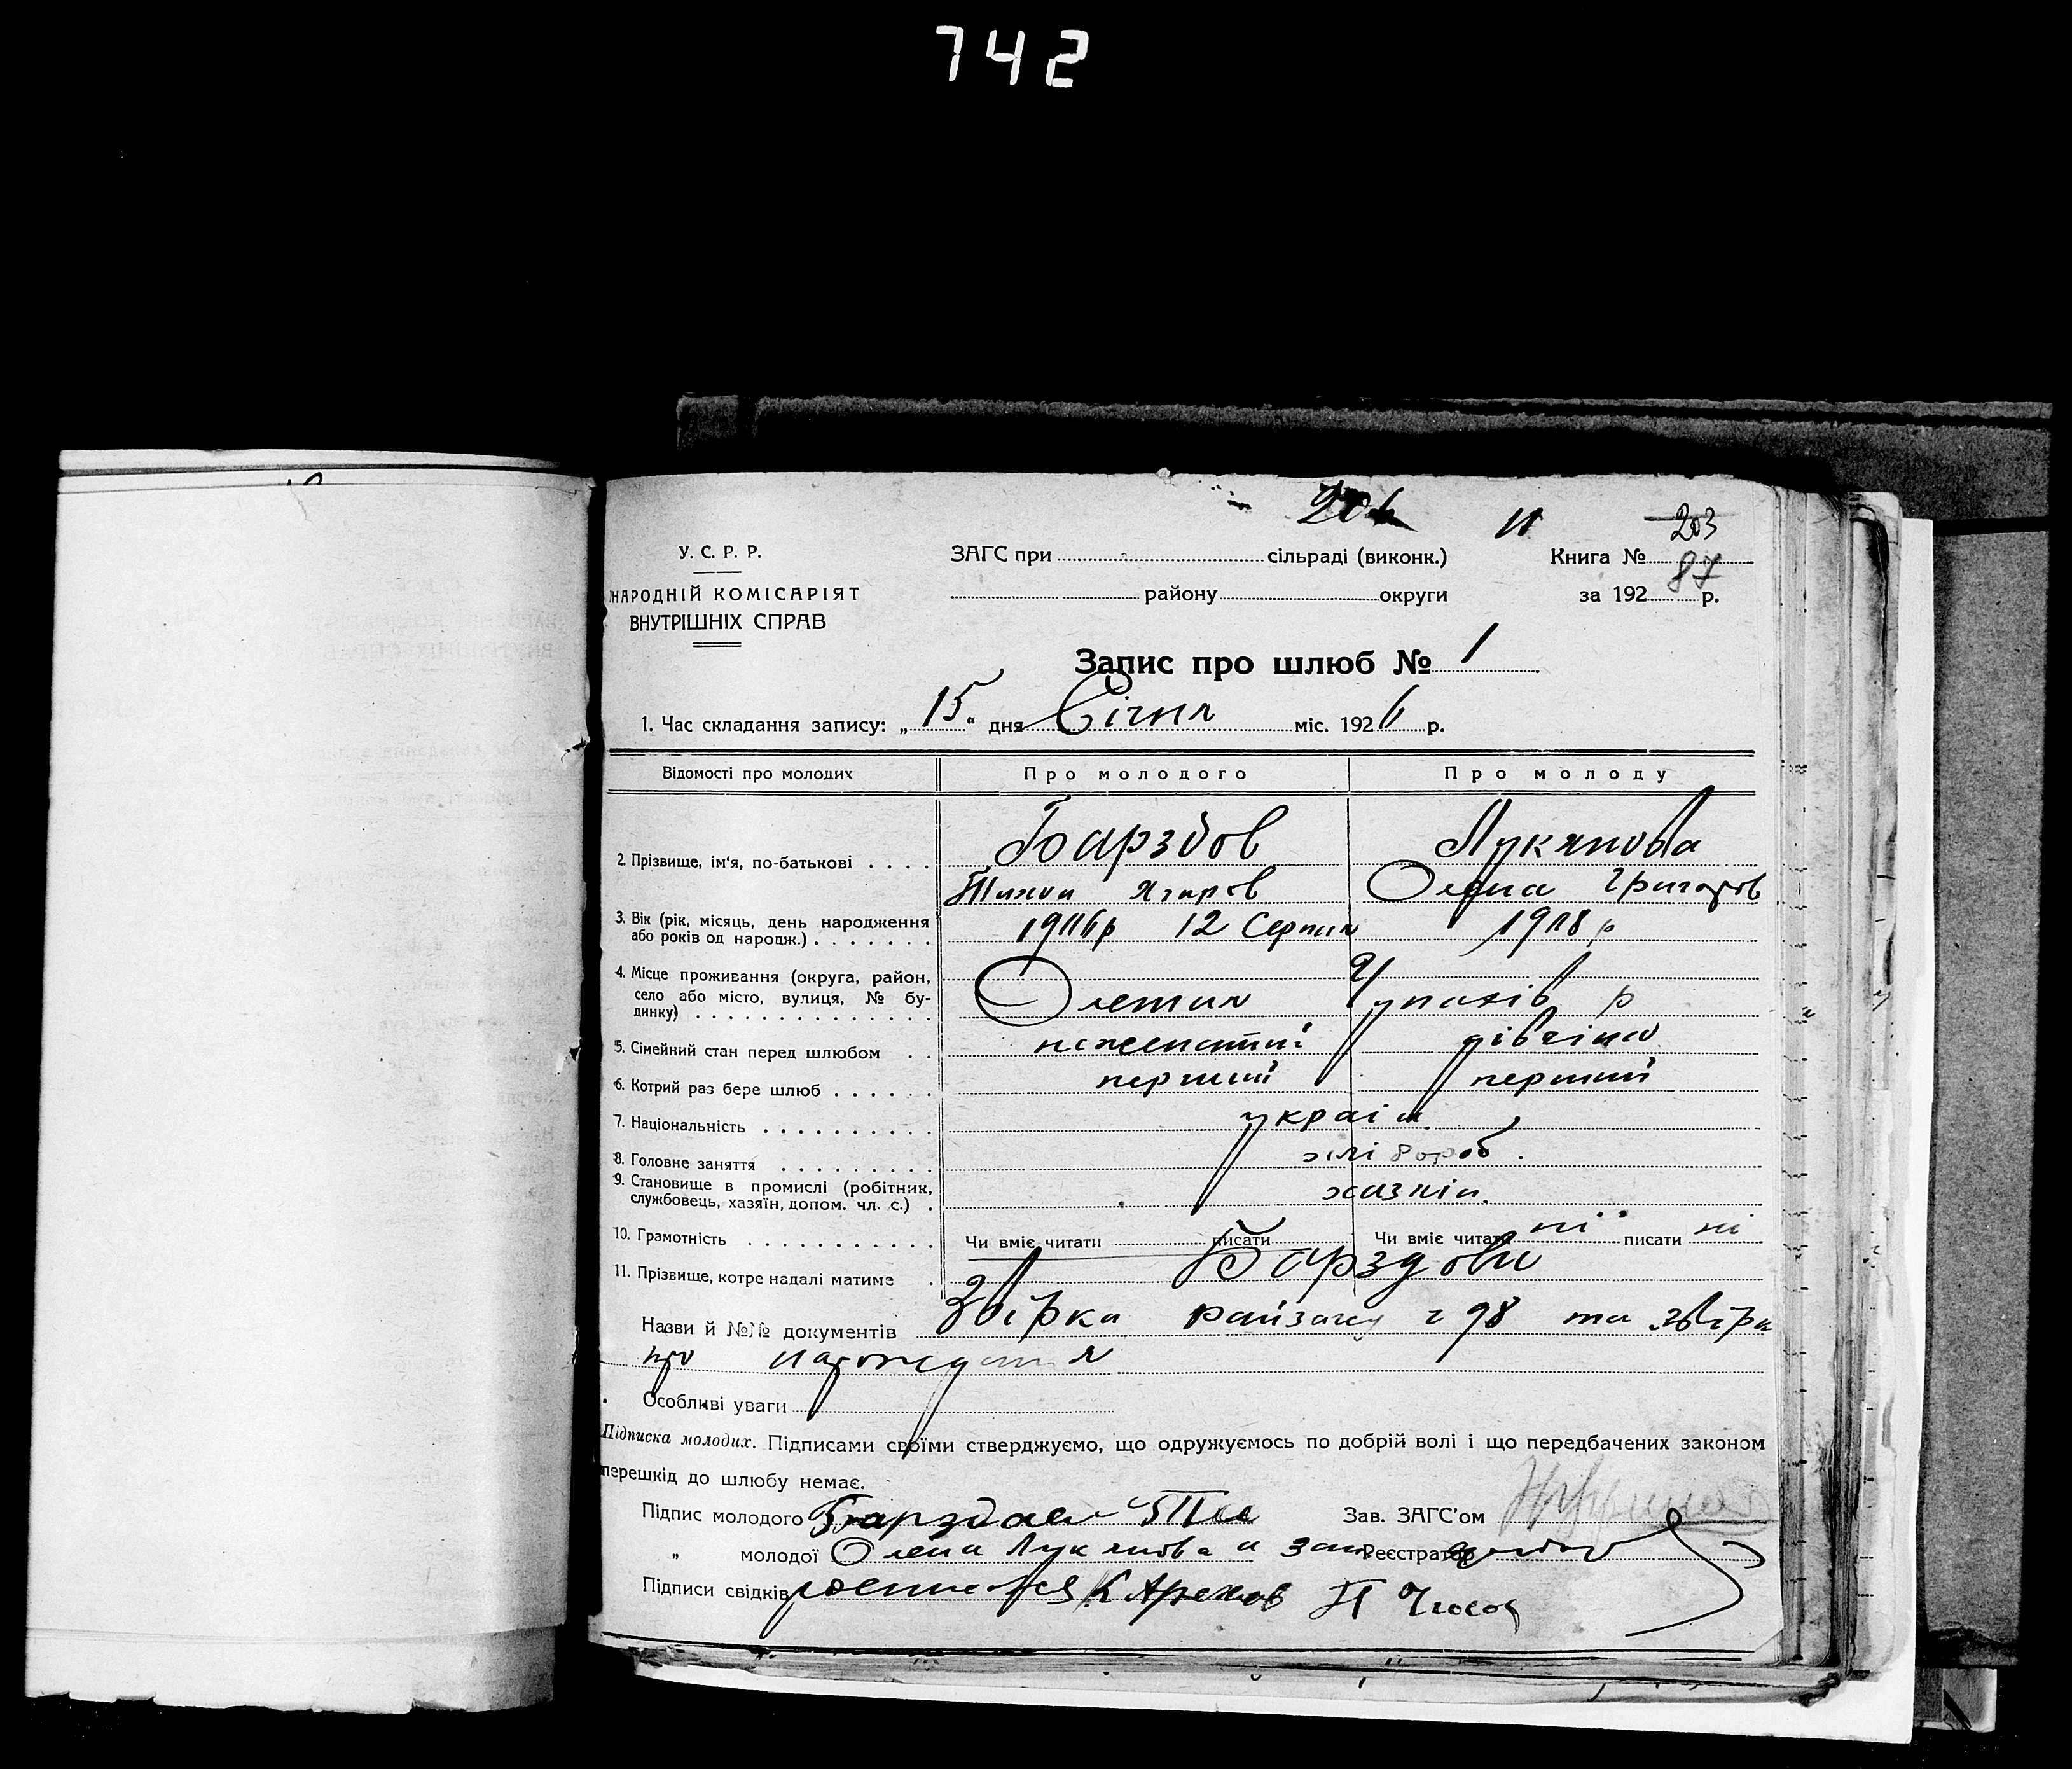 742
206 11 203
У. С. Р. Р. ЗАГС при сільраді (виконк.) Книга № 87
НАРОДНІЙ КОМІСАРІЯТ району округи за 192 р.
ВНУТРІШНІХ СПРАВ
Запис про шлюб № 1
1. Час складання запису: „ 15 “ дня Січня міс. 1926 р.
Відомості про молодих Про молодого Про молоду
2. Прізвище, ім'я, по-батькові . . . . Барздов Лукянова
Тихон Олена Григоров
3. Вік (рік, місяць, день народження 12 Серпня
або років од народж.) . . . . . . .
4. Місце проживання (округа, район,
село або місто, вулиця, № бу-
динку) . . . . . . . . . . . . . .
5. Сімейний стан перед шлюбом . . неженатий дівчина
6. Котрий раз бере шлюб . . . . . . перший перший
7. Національність . . . . . . . . . . україн
8. Головне заняття . . . . . . . . . хлібороб.
9. Становище в промислі (робітник,
службовець, хазяїн, допом. чл. с.) .
10. Грамотність . . . . . . . . . . . Чи вміє читати писати Чи вміє читати ні писати ні
11. Прізвище, котре надалі матиме . Барздови
Назви й №№ документів Звірка райзагсу ч 98 та звірка
про народження
Особливі уваги
Підписка молодих. Підписами своїми стверджуємо, що одружуємось по добрій волі і що передбачених законом
перешкід до шлюбу немає.
Підпис молодого Зав. ЗАГС'ом
„ молодої Олена Лукянова а Реєстратор
Підписи свідків